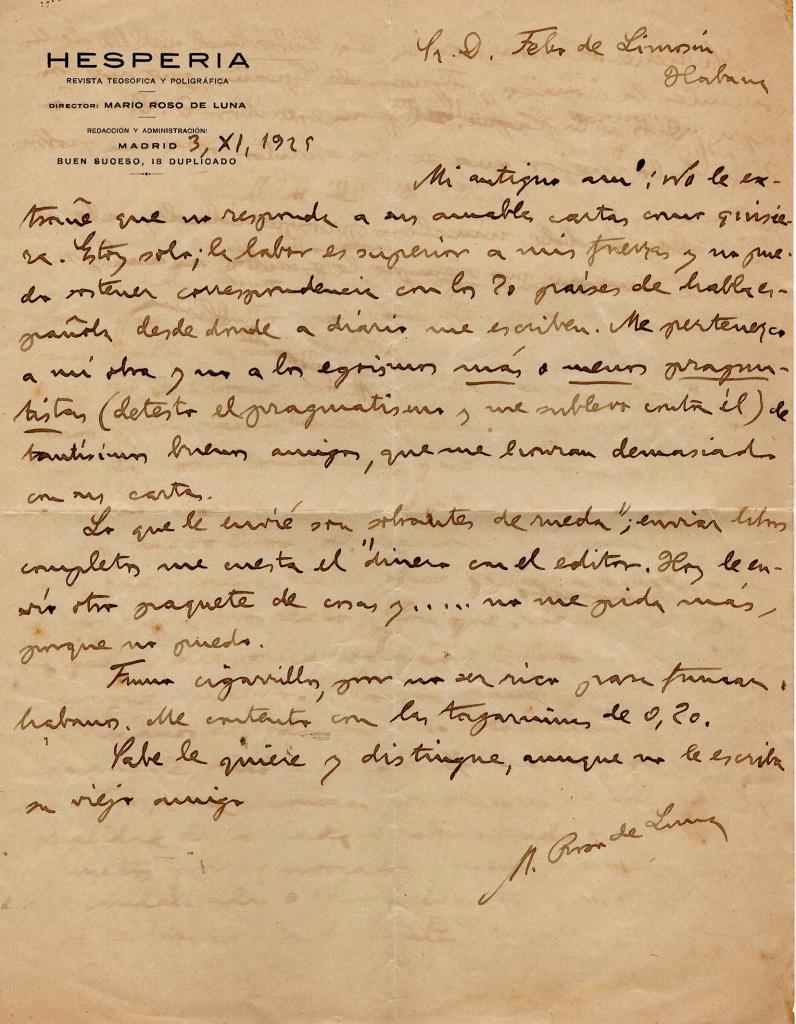 HESPERIA
REVISTA TEOSÓFICA Y POLIGRÁFICA
DIRECTOR: MARIO ROSO DE LUNA
REDACCIÓN Y ADMINISTRACIÓN:
MADRID 3, XI, 192
BUEN SUCESO, 18 DUPLICADO
Sr. D. de Limosin
Habana
Mi antiguo am°: No le ex-
trañe que no responda a sus amables cartas como quisie-
ra. Estoy solo; la labor es superior a mis fuerzas y no pue-
do sostener correspondencia con los 20 países de habla es-
pañola desde donde a diario me escriben. Me pertenezco
a mi obra y no a los egoismos más o menos pragma-
tistas (detesto el pragmatismo y me sublevo contra él) de
tantísimos buenos amigos, que me honran demasiado
con sus cartas.
Lo que le envié son sobrantes de rueda"; enviar libros
completos me cuesta el "dinero con el editor. Hoy le en-
vío otro paquete de cosas y..... no me pida más,
porque no puedo.
Fumo cigarrillos, por no ser rico para fumar
habanos. Me contento con las tagarninas de 0,20.
Sabe le quiere y distingue, aunque no le escriba
su viejo amigo
M. Roso de Luna